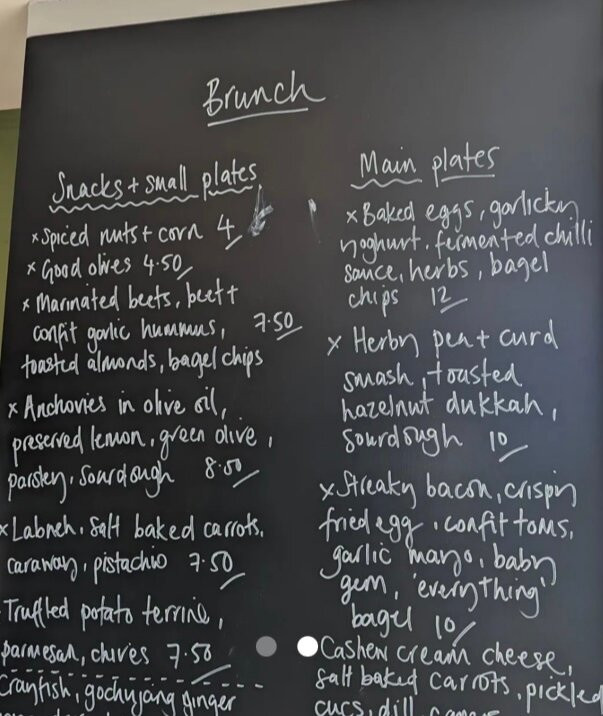 Brunch
Snacks + small plates
x Spiced nuts + corn 4
x Good olives 4.50
x Marinated beets, beet +
confit garlic hummus, 7.50
toasted almonds, bagel chips
x Anchovies in olive oil,
preserved lemon, green olive,
parsley, sourdough 8.50
x Labneh, salt baked carrots,
caraway, pistachio 7.50
Truffled potato terrine,
parmesan, chives 7.50
Crayfish, gochujang ginger
Main plates
x Baked eggs, garlicky
yoghurt, fermented chilli
sauce, herbs, bagel
chips 12
x Herby pea + curd
smash, toasted
hazelnut dukkah,
sourdough 10
x Streaky bacon, crispy
fried egg, confit toms,
garlic mayo, baby
gem, 'everything'
bagel 10
Cashew cream cheese,
salt baked carrots, pickled
cucs, dill